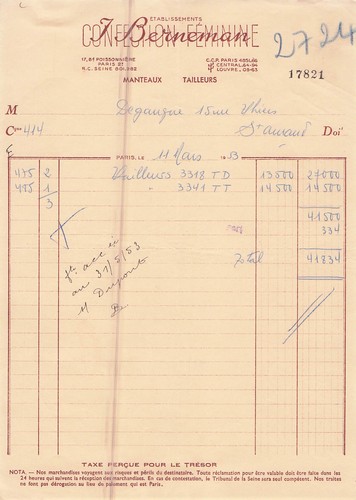 ÉTABLISSEMENTS
CONFECTION FÉMININE
J. Berneman
17, Bᴰ POISSONNIÈRE
PARIS 2ᵉ
R.C. SEINE
C.C.P. PARIS
CENTRAL 64-94
LOUVRE 08-63
MANTEAUX TAILLEURS
2724
17821
M
15 rue
Cᵗᵉ 414
St amand Doit
PARIS, LE 11 Mars 1953
475 2 Tailleurs 3318 TD 13500 27000
1 " 3341 TT 14500 14500
3
41500
334
Total 41834
au 31/5/53
M Dupont
TAXE PERÇUE POUR LE TRÉSOR
NOTA. — Nos marchandises voyagent aux risques et périls du destinataire. Toute réclamation pour être valable doit être faite dans les
24 heures qui suivent la réception des marchandises. En cas de contestation, le Tribunal de la Seine sera seul compétent. Nos traites
ne font pas dérogation au lieu de paiement qui est Paris.